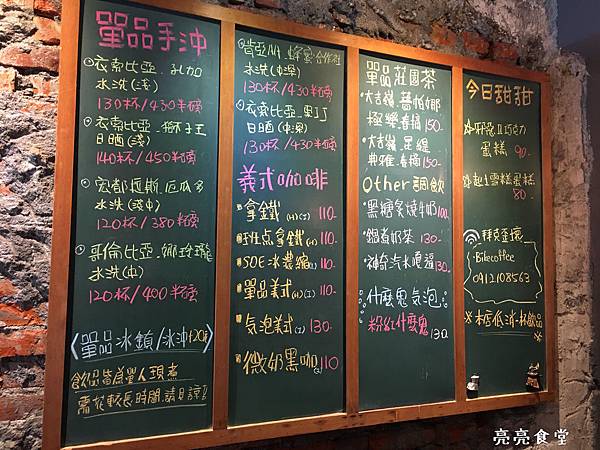 單品手沖
衣索比亞.孔加
水洗(淺)
130杯/430半磅
衣索比亞.獅子王
日晒(淺)
140杯/450半磅
宏都拉斯.厄瓜多
水洗(淺中)
120杯/380半磅
哥倫比亞.娜玲瓏
水洗(中)
120杯/400半磅
〈單品冰鎮/冰沖+20元〉
飲品皆為單人現煮
需花較長時間.請見諒!!
合作社
水洗(中深)
130杯/430半磅
衣索比亞.果丁丁
日晒(中深)
130杯/430半磅
義式咖啡
拿鐵(H)(I) 110-
點拿鐵(H) 110-
SOE冰濃縮(I) 110-
單品義式(H)(I) 110-
氣泡義式(I) 130-
微奶黑咖(I) 110
單品莊園茶
大吉嶺.普帕娜
極樂.春摘 150-
大吉嶺.星緹
典雅.春摘 150-
Other調飲
黑糖炙燒牛奶 100-
鍋煮奶茶 130-
神奇汽水 130-
什麼鬼氣泡
粉紅什麼鬼 130-
今日甜甜
邪惡巧克力
蛋糕 90-
起士雪糕蛋糕
80-
拜克歪擴
"Bikecoffee
0912108563
※本店低消一杯飲品※
亮亮食堂